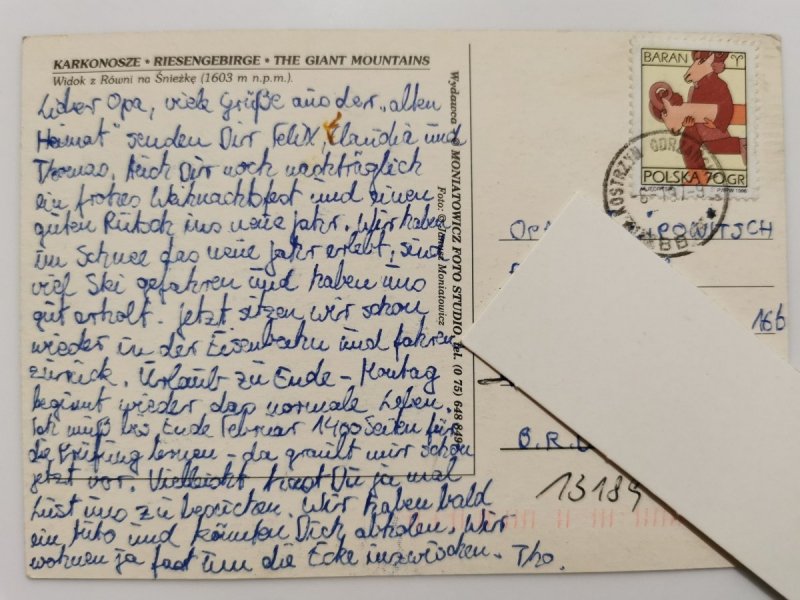 KARKONOSZE • RIESENGEBIRGE • THE GIANT MOUNTAINS
Widok z Równi na Śnieżkę (1603 m n.p.m.).
Lieber Opa, viele Grüße aus der „alten
Heimat" senden Dir Felix, Claudia und
Thomas. Auch Dir noch nachträglich
ein frohes Weihnachtsfest und einen
guten Rutsch ins neue Jahr. Wir haben
im Schnee das neue Jahr erlebt, sind
viel Ski gefahren und haben uns
gut erholt. Jetzt sitzen wir schon
wieder in der Eisenbahn und fahren
zurück. Urlaub zu Ende – Montag
beginnt wieder das normale Leben.
Ich muß bis Ende Februar 1400 Seiten für
die Prüfung lernen – da grault mir schon
jetzt vor. Vielleicht hast Du ja mal
Lust uns zu besuchen. Wir haben bald
ein Auto und könnten Dich abholen. Wir
wohnen ja fast um die Ecke inzwischen. Tho.
Wydawca MONIATOWICZ FOTO STUDIO, tel. (0 75) 648 849
Foto: © Moniatowicz
BARAN
POLSKA 70 GR
PWPW 1996
KOSTRZYN ODRZ
OPA
POWITSCH
16b
B.R.
13189